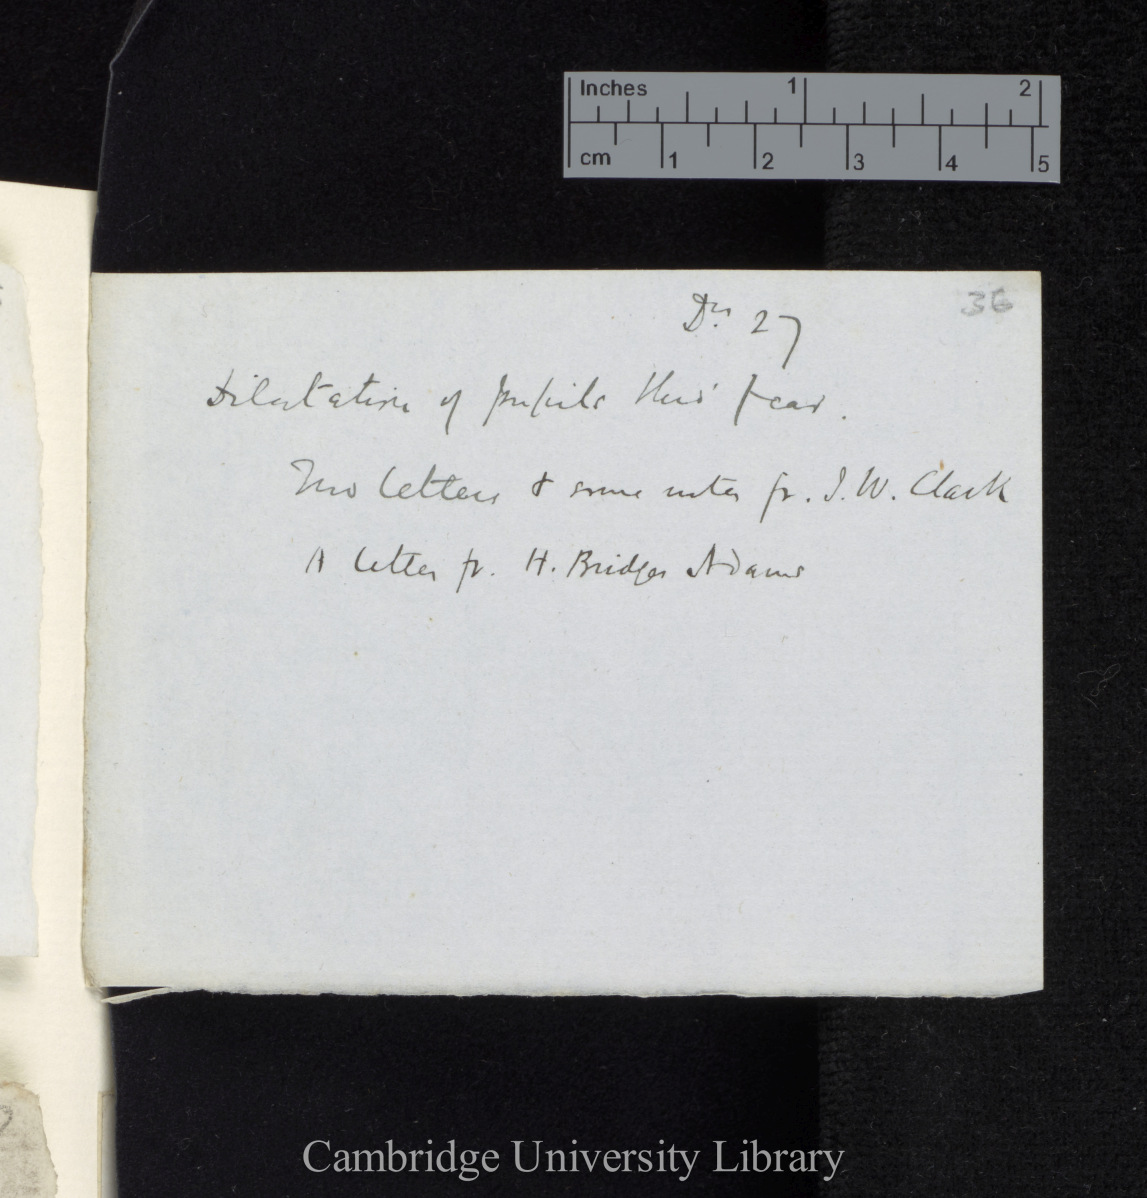 Inches 1 2
cm 1 2 3 4 5
36
Dr 27
Dilatation of pupils thro' fear.
Two letters & some notes fr. J. W. Clark
A letter fr. H. Bridges Adams
Cambridge University Library